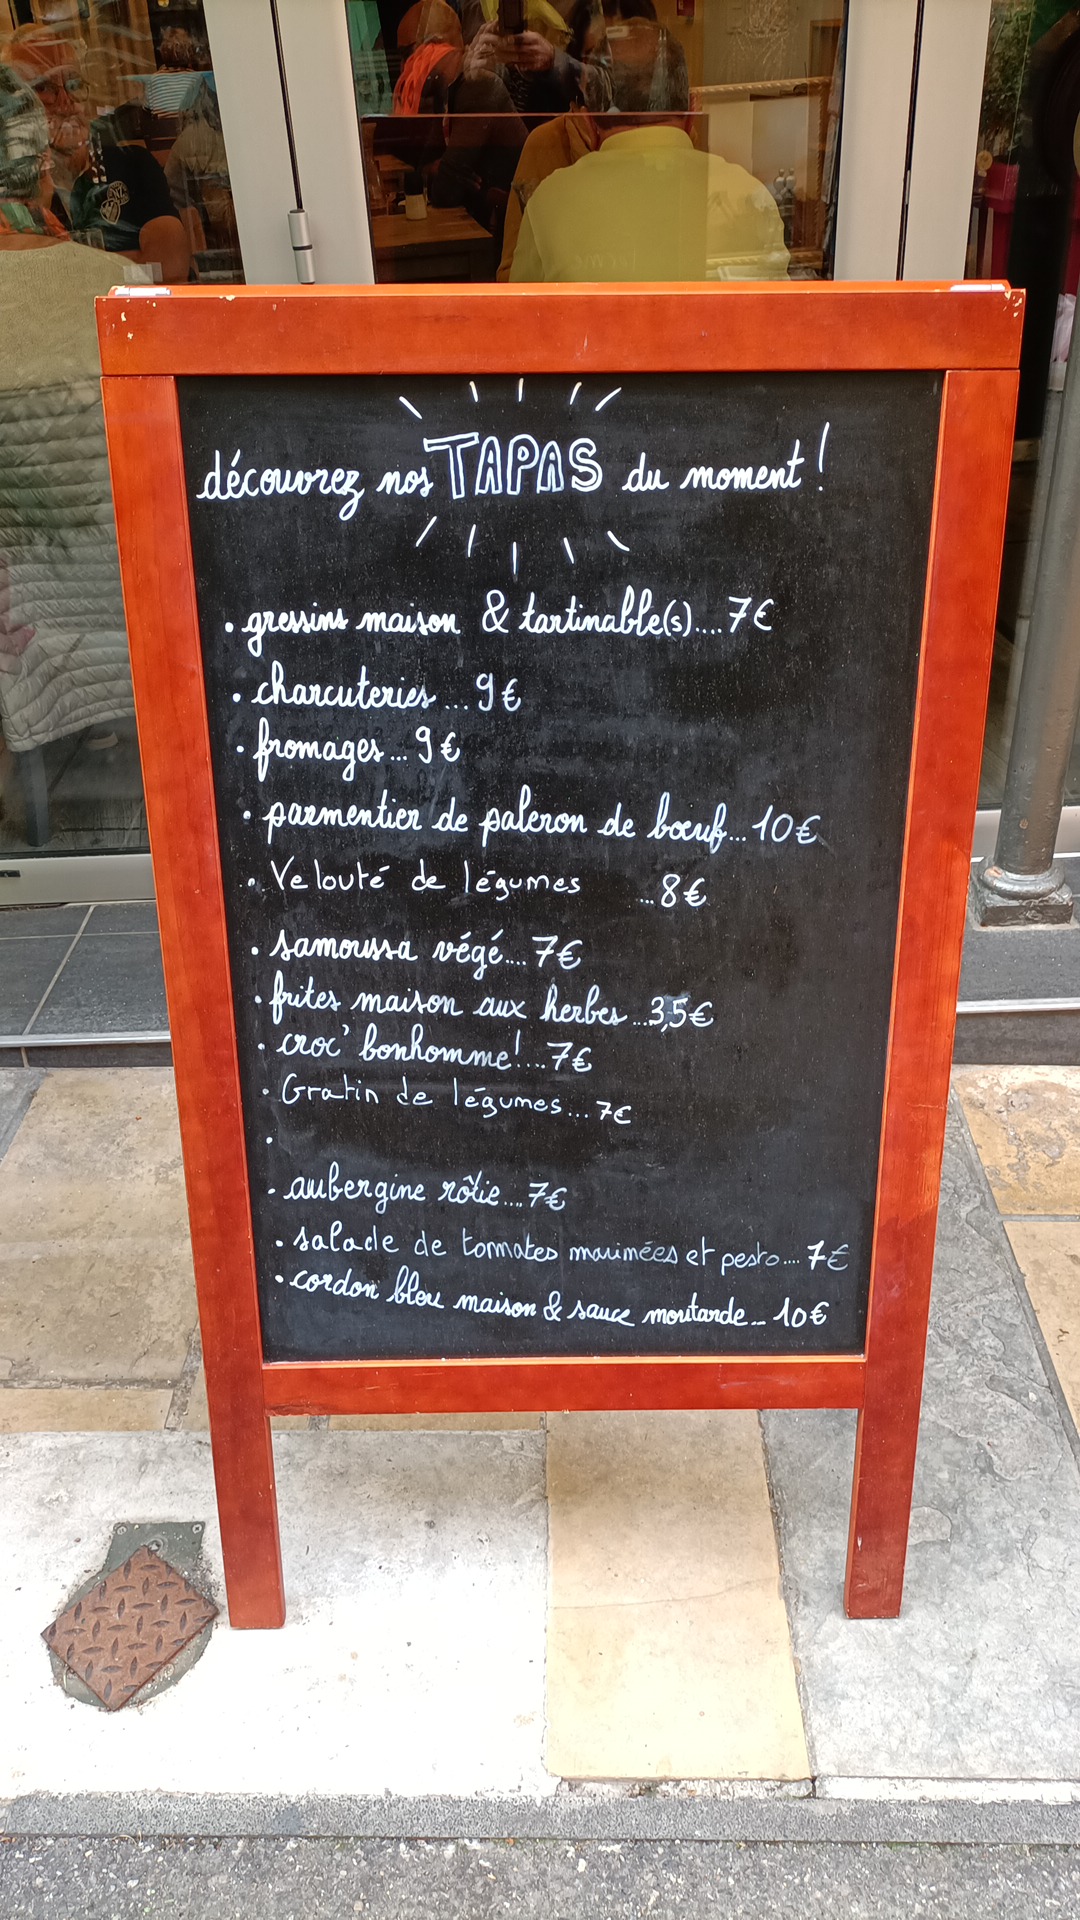 découvrez nos TAPAS du moment !
• gressins maison & tartinable(s).... 7€
• charcuteries ... 9€
• fromages ... 9€
• parmentier de paleron de bœuf... 10€
• Velouté de légumes ...8€
• samoussa végé.... 7€
• frites maison aux herbes ...3,5€
• croc' bonhomme!....7€
• Gratin de légumes... 7€
•
• aubergine rôtie.... 7€
• salade de tomates marinées et pesto.... 7€
• cordon bleu maison & sauce moutarde... 10€